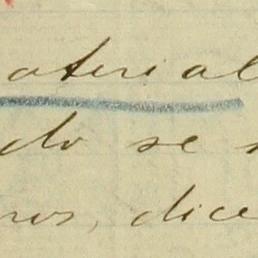 aterial
do se
ros, dice